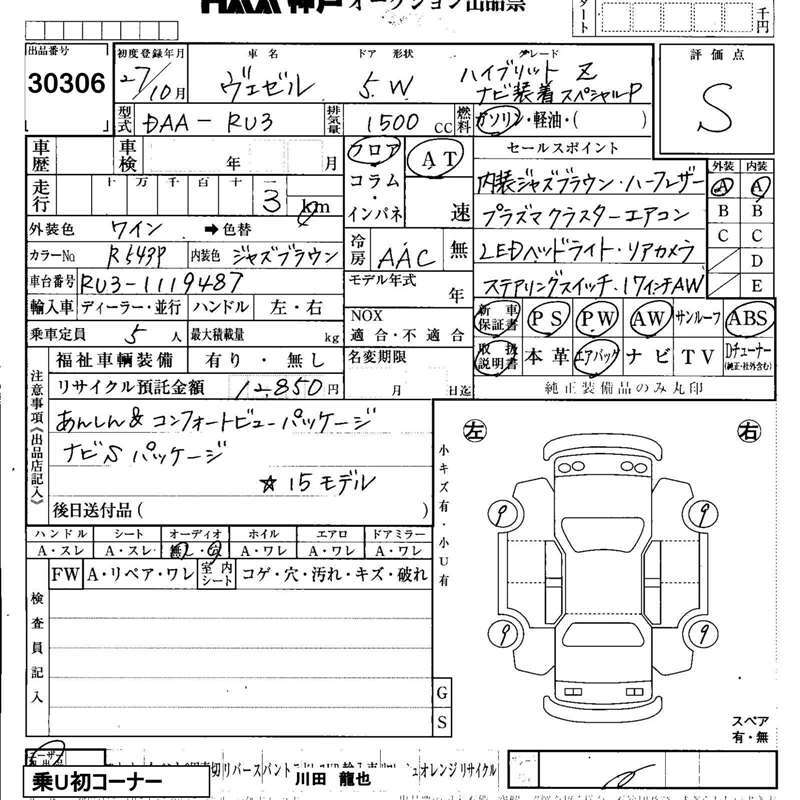 神戸 オークション出品票
千円
出品番号 初度登録年月 車名 ドア 形状 グレード 評価点
30306 27/10月 ヴェゼル 5.W ハイブリット Z
ナビ装着スペシャルP
S
型式 DAA-RU3 排気量 1500 CC 燃料 ガソリン・軽油・( )
車歴 車検 年 月 フロア AT セールスポイント
外装 内装
走行 十万千百十一 3 km コラム・インパネ 速 内装ジャズブラウン・ハーフレザー A A
外装色 ワイン ➡色替 プラズマクラスターエアコン B B
カラーNo R543P 内装色 ジャズブラウン 冷房 AAC 無 LEDヘッドライト・リアカメラ C C
D
車台番号 RU3-1119487 モデル年式 年 ステアリングスイッチ.17インチAW E
輸入車 ディーラー・並行 ハンドル 左・右 NOX 適合・不適合 新車保証書 PS PW AW サンルーフ ABS
乗車定員 5 人 最大積載量 kg
福祉車輌装備 有り・無し 名変期限 月 日迄 取扱説明書 本革 エアバッグ ナビ TV Dチューナー(純正・社外含む)
リサイクル預託金額 12,850円 純正装備品のみ丸印
注意事項《出品店記入》
あんしん& コンフォートビューパッケージ
ナビS パッケージ
☆15モデル
後日送付品( )
左 右
小キズ有・小U有
ハンドル シート オーディオ ホイル エアロ ドアミラー
A・スレ A・スレ 無・ A・ワレ A・ワレ A・ワレ
FW A・リペア・ワレ 室内シート コゲ・穴・汚れ・キズ・破れ
9 9
9 9
検査員記入
G
S
スペア
有・無
ユーザー
リバース オレンジ リサイクル
乗U初コーナー 川田 龍也